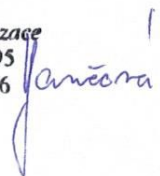 zace
95
6
Jančová